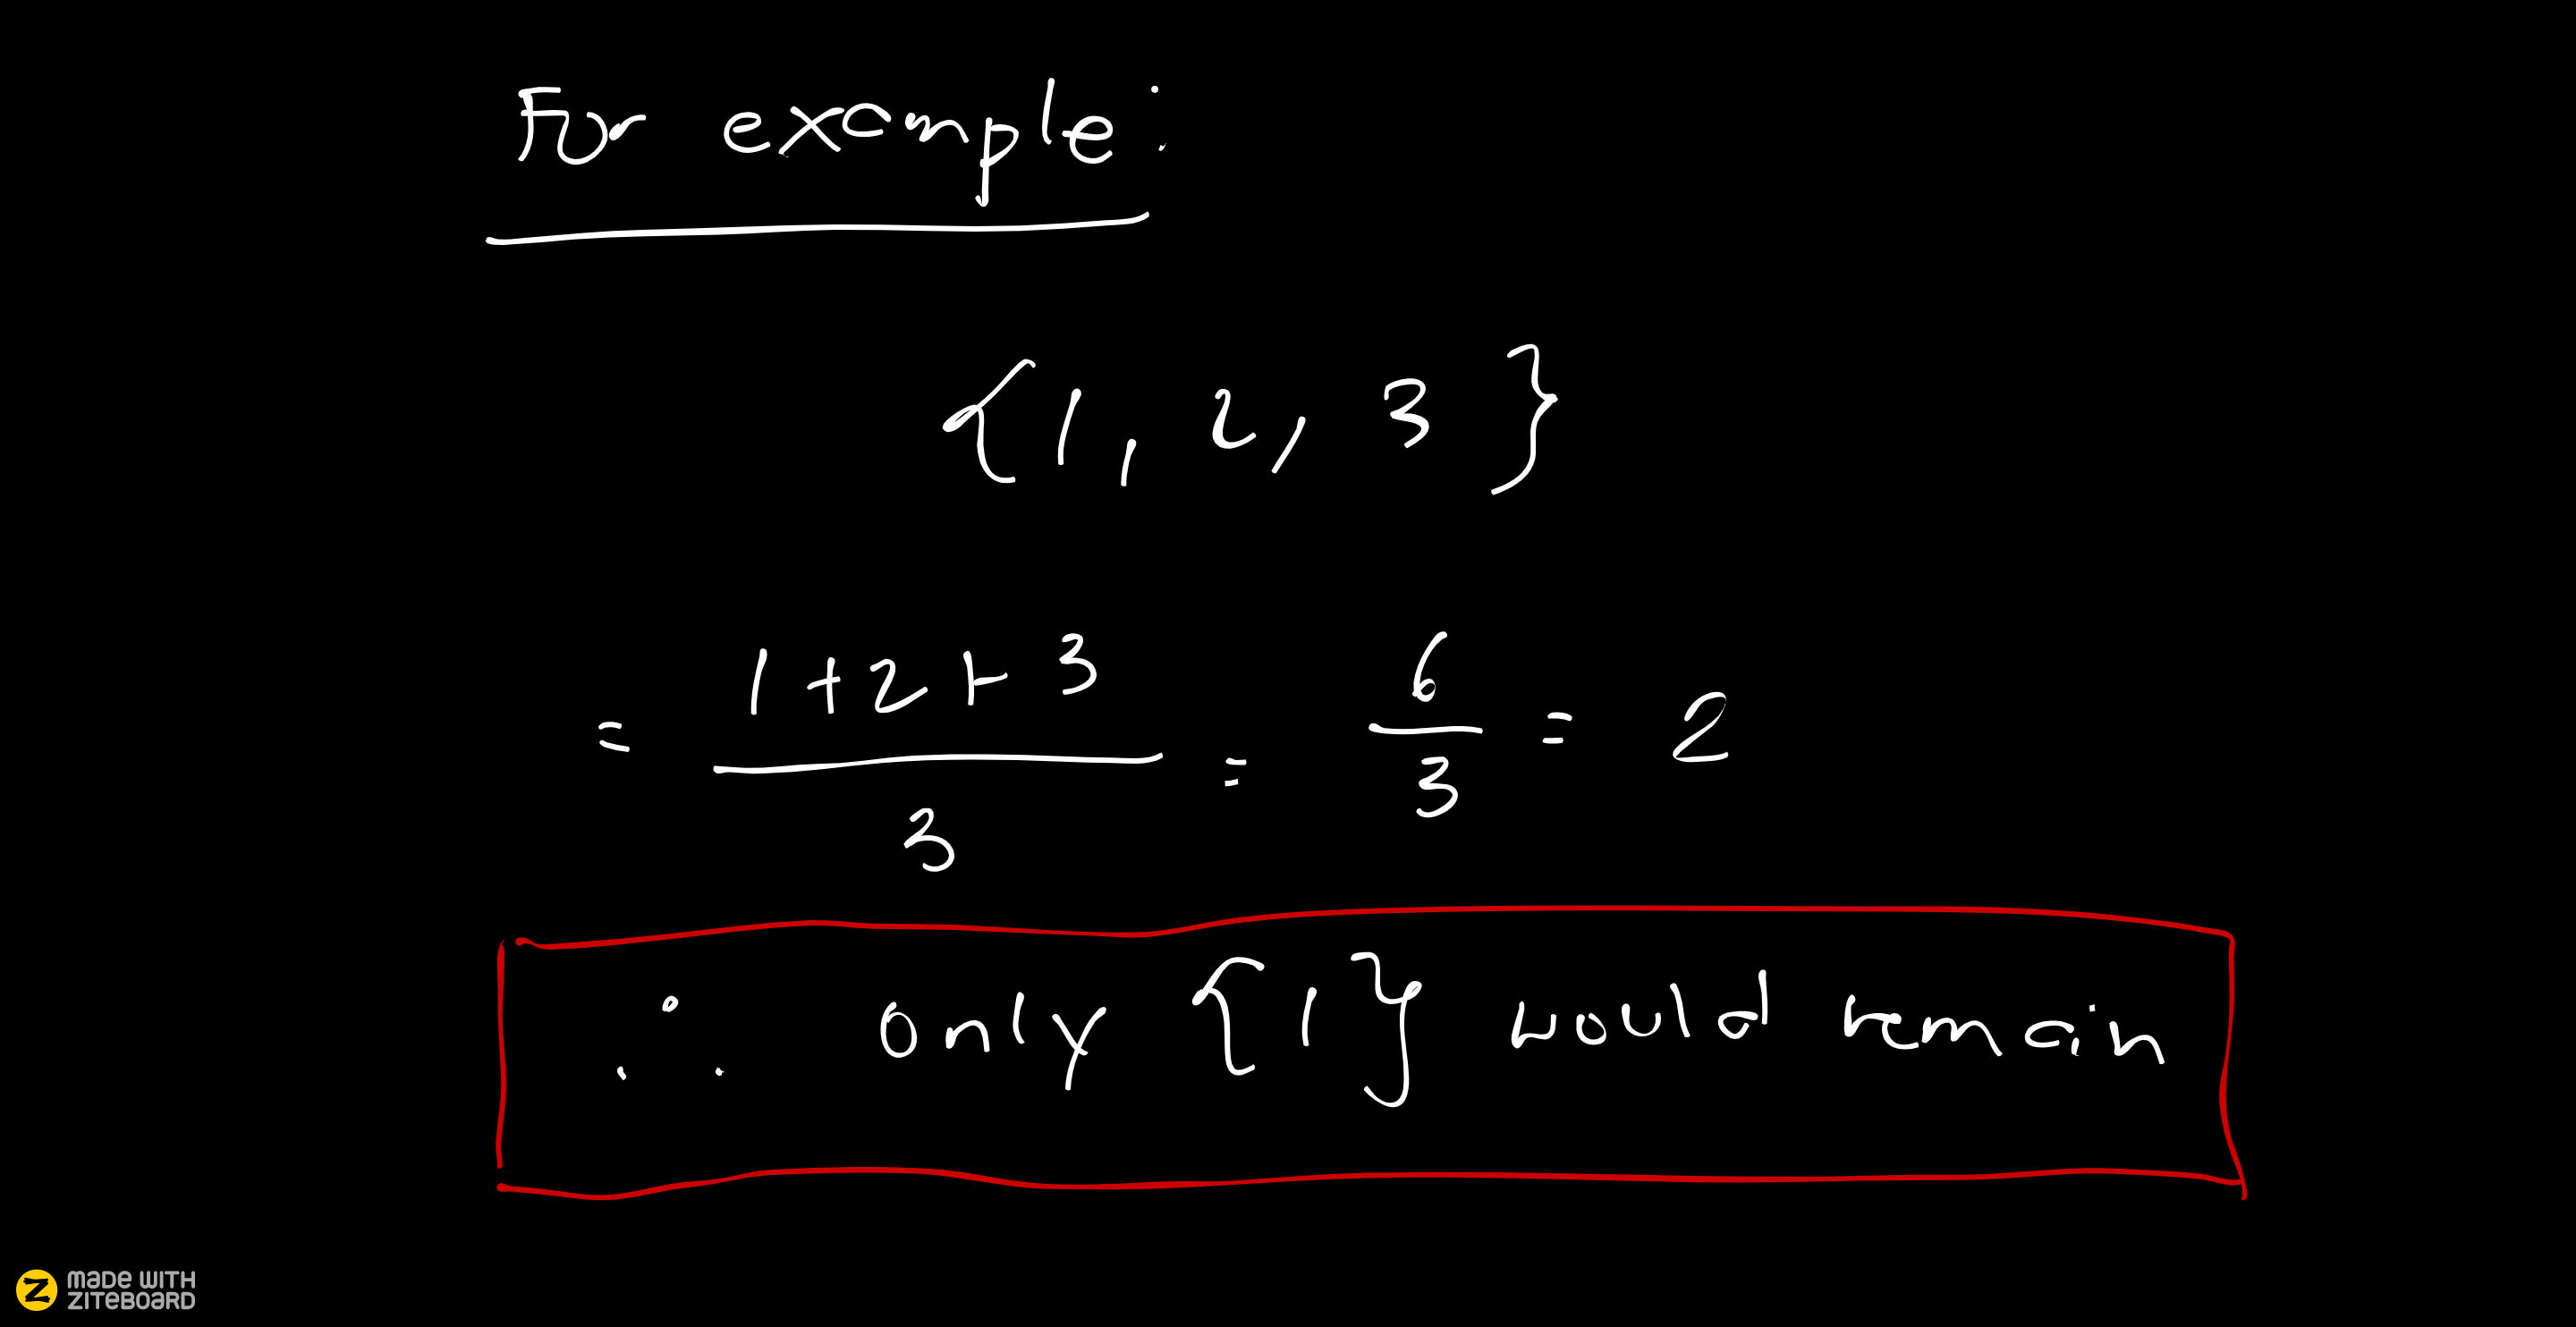 For example:
{1, 2, 3}
= 1+2+3 / 3 = 6 / 3 = 2
∴ only {1} would remain
MADE WITH
ZITEBOARD